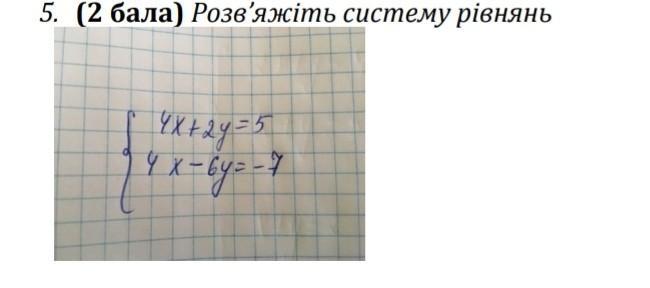 5. (2 бала) Розв’яжіть систему рівнянь
4x+2y=5
4x-6y=-7